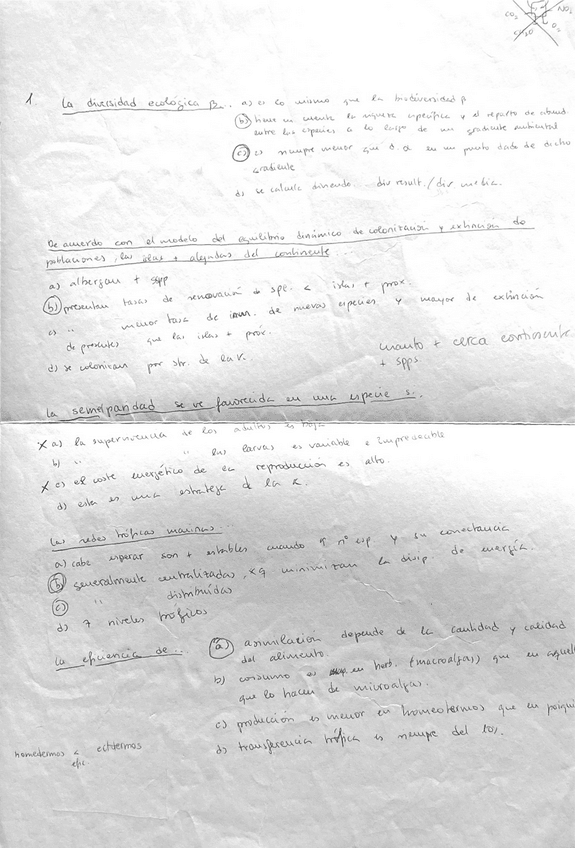 CO2 NO3
O2
1 La diversidad ecológica β... a) es lo mismo que la biodiversidad β
b) tiene en cuenta la riqueza específica y el reparto de abund.
entre las especies a lo largo de un gradiente ambiental
c) es siempre menor que d. α en un punto dado de dicho
gradiente
d) se calcula dividiendo div result. / div media.
De acuerdo con el modelo del equilibrio dinámico de colonización y extinción de
poblaciones, las islas + alejadas del continente
a) albergan + spp
b) presentan tasas de renovación de spe. < islas + prox.
c) " menor tasa de inm. de nuevas especies y mayor de extinción
de presentes que las islas + prox.
d) se colonizan por str. de la K.
cuanto + cerca continente
+ spps
La semelparidad se ve favorecida en una especie si.
x a) la supervivencia de los adultos es baja
b) " " las larvas es variable e impredecible
x c) el coste energético de la reproducción es alto.
d) esta es una estratega de la K.
Las redes tróficas marinas...
a) cabe esperar son + estables cuando nº esp y su conectancia
b) generalmente centralizadas, xq minimizan la disip. de energía.
c) " distribuidas
d) 7 niveles tróficos
La eficiencia de... a) asimilación depende de la cantidad y calidad
del alimento.
b) consumo es en herb. (macroalgas) que en aquell
que lo hacen de microalgas.
c) producción es menor en homeotermos que en poiqui
d) transferencia trófica es siempre del 10%.
homeotermos < ectotermos
efic.